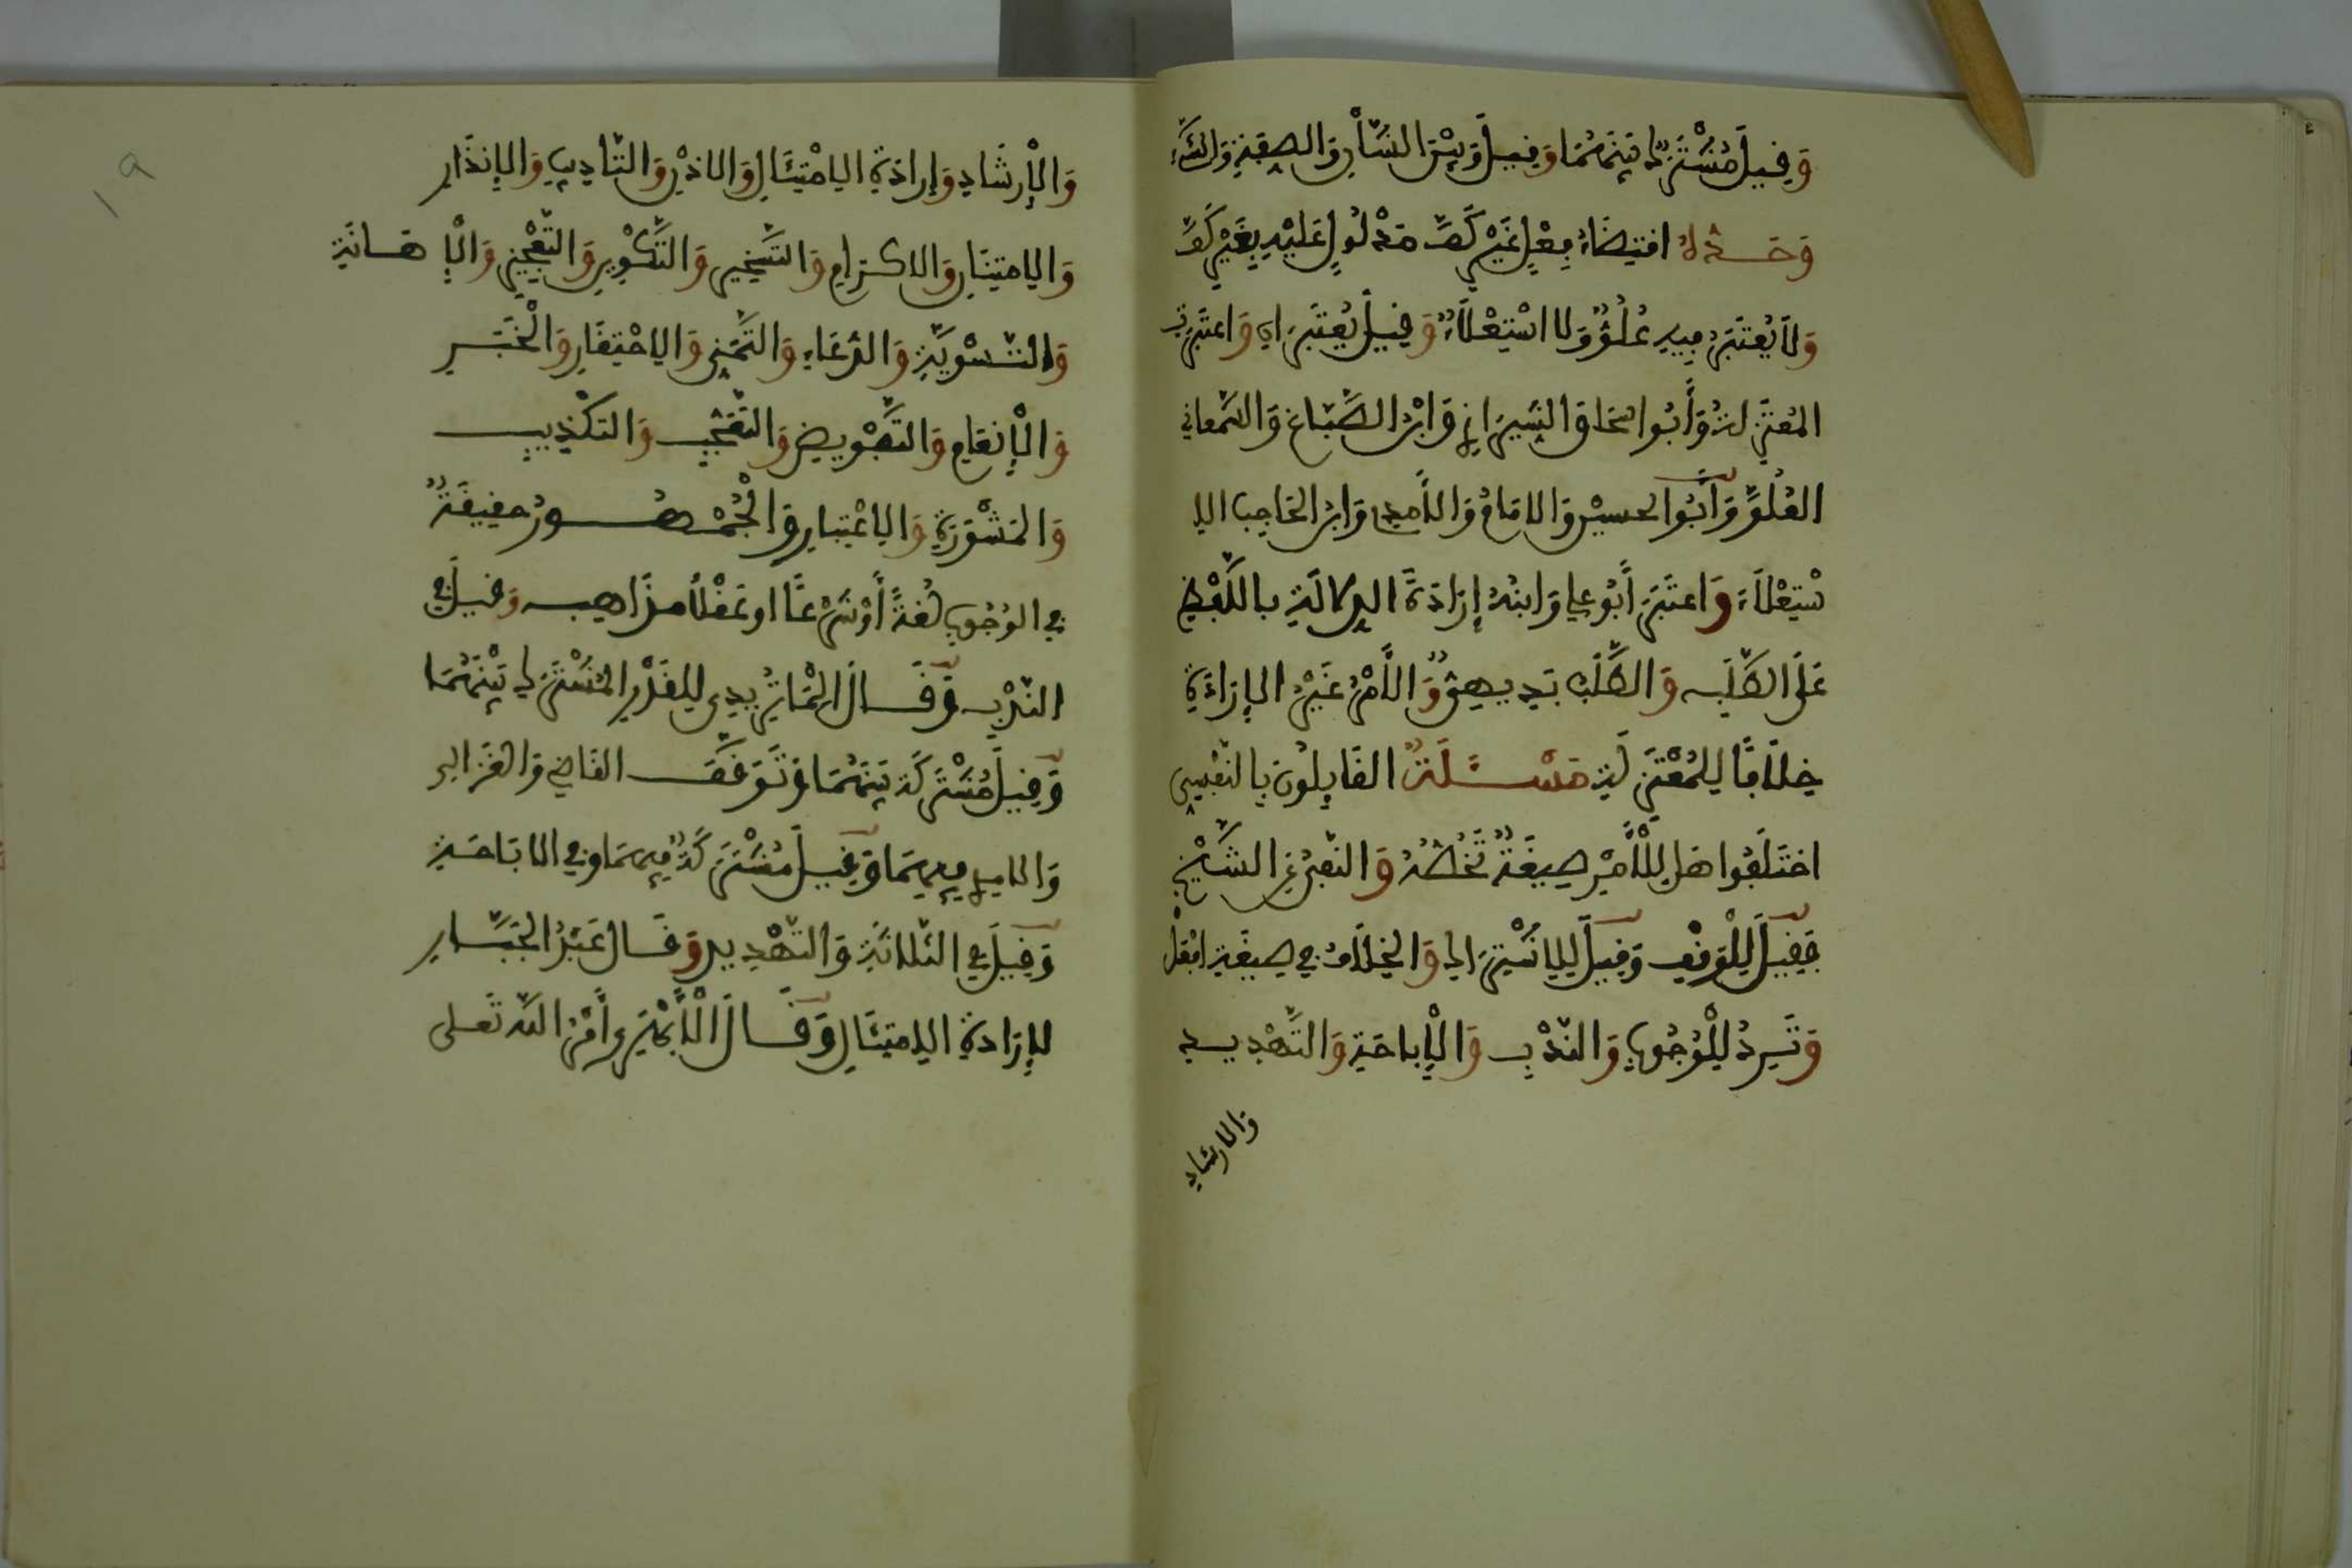 وَقِيلَ مُشْتَرَكٌ بَيْنَهُمَا وَقِيلَ وَبَيْنَ الشَّأْنِ وَالصِّفَةِ وَالشَّيْءِ
وَحَدُّهُ اقْتِضَاءُ فِعْلٍ غَيْرِ كَفٍّ مَدْلُولٍ عَلَيْهِ بِغَيْرِ كَفَّ
وَلَا يُعْتَبَرُ فِيهِ عُلُوٌّ وَلَا اسْتِعْلَاءٌ وَقِيلَ يُعْتَبَرَانِ وَاعْتَبَرَتِ
المُعْتَزِلَةُ وَأَبُو إسحاق الشِّيرَازِي وَابْنُ الصَّبَّاغِ وَالسَّمعاني
العُلُوَّ وَأَبُو الحسين وَالإمَامُ وَالآمدي وَابن الحَاجب الا
سْتِعْلَاءَ وَاعْتَبَرَ أَبُو علي وَابنُهُ إِرَادَةَ الدِّلَالَةِ بِاللَّفْظِ
عَلَى الطَّلَبِ وَالطَّلَبُ بَدِيهِيٌّ وَالْأَمْرُ غَيْرُ الْإِرَادَةِ
خِلَافًا لِلْمُعْتَزِلَةِ مَسْـَٔلَةٌ القَايِلُونَ بِالنَّفْسِي
اخْتَلَفُوا هَلْ لِلْأَمْرِ صِيغَةٌ تَخُصُّهُ وَالنَّفْيُ عَنِ الشَّيْخِ
فَقِيلَ لِلْوَقْفِ وَقِيلَ لِلِاشْتِرَاكِ وَالْخِلَافُ فِي صِيغَةِ افْعَلْ
وَتَرِدُ لِلْوُجُوبِ وَالنَّدْبِ وَالْإِبَاحَةِ وَالتَّهْدِيدِ
والارشاد
١٩
وَالْإِرْشَادِ وَإِرَادَةِ الِامْتِثَالِ وَالْإِذْنِ وَالتَّأْدِيبِ وَالْإِنْذَارِ
وَالِامْتِنَانِ وَالإكْرَامِ وَالتَّسْخِيرِ وَالتَّكْوِينِ وَالتَّعْجِيزِ وَالْإِهَانَةِ
وَالتَّسْوِيَةِ وَالدُّعَاءِ وَالتَّمَنِّي وَالِاحْتِقَارِ وَالْخَبَرِ
وَالْإِنْعَامِ وَالتَّفْوِيضِ وَالتَّعَجُّبِ وَالتَّكْذِيبِ
وَالْمَشُورَةِ وَالِاعْتِبَارِ وَالْجُمْهُورُ حَقِيقَةٌ
فِي الوُجُوبِ لُغَةً أَوْ شَرْعًا أو عَقْلًا مَذَاهِبُ وَقِيلَ فِي
النَّدْبِ وَقَالَ الْمَاتُرِيدِي لِلْقَدْرِ الْمُشْتَرَكِ بَيْنَهُمَا
وَقِيلَ مُشْتَرَكَةٌ بَيْنَهُمَا وَتَوَقَّفَ القَاضِي وَالغَزَالِي
وَالآمدِي فِيهِمَا وَقِيلَ مُشْتَرَكَةٌ فِيهِمَا وَفِي الإبَاحَةِ
وَقِيلَ فِي الثَّلَاثَةِ وَالتَّهْدِيدِ وَقَالَ عَبْدُ الْجَبَّارِ
لِإِرَادَةِ الِامْتِثَالِ وَقَالَ الْأَبْهَرِي أَمْرُ اللَّهِ تَعَلَى